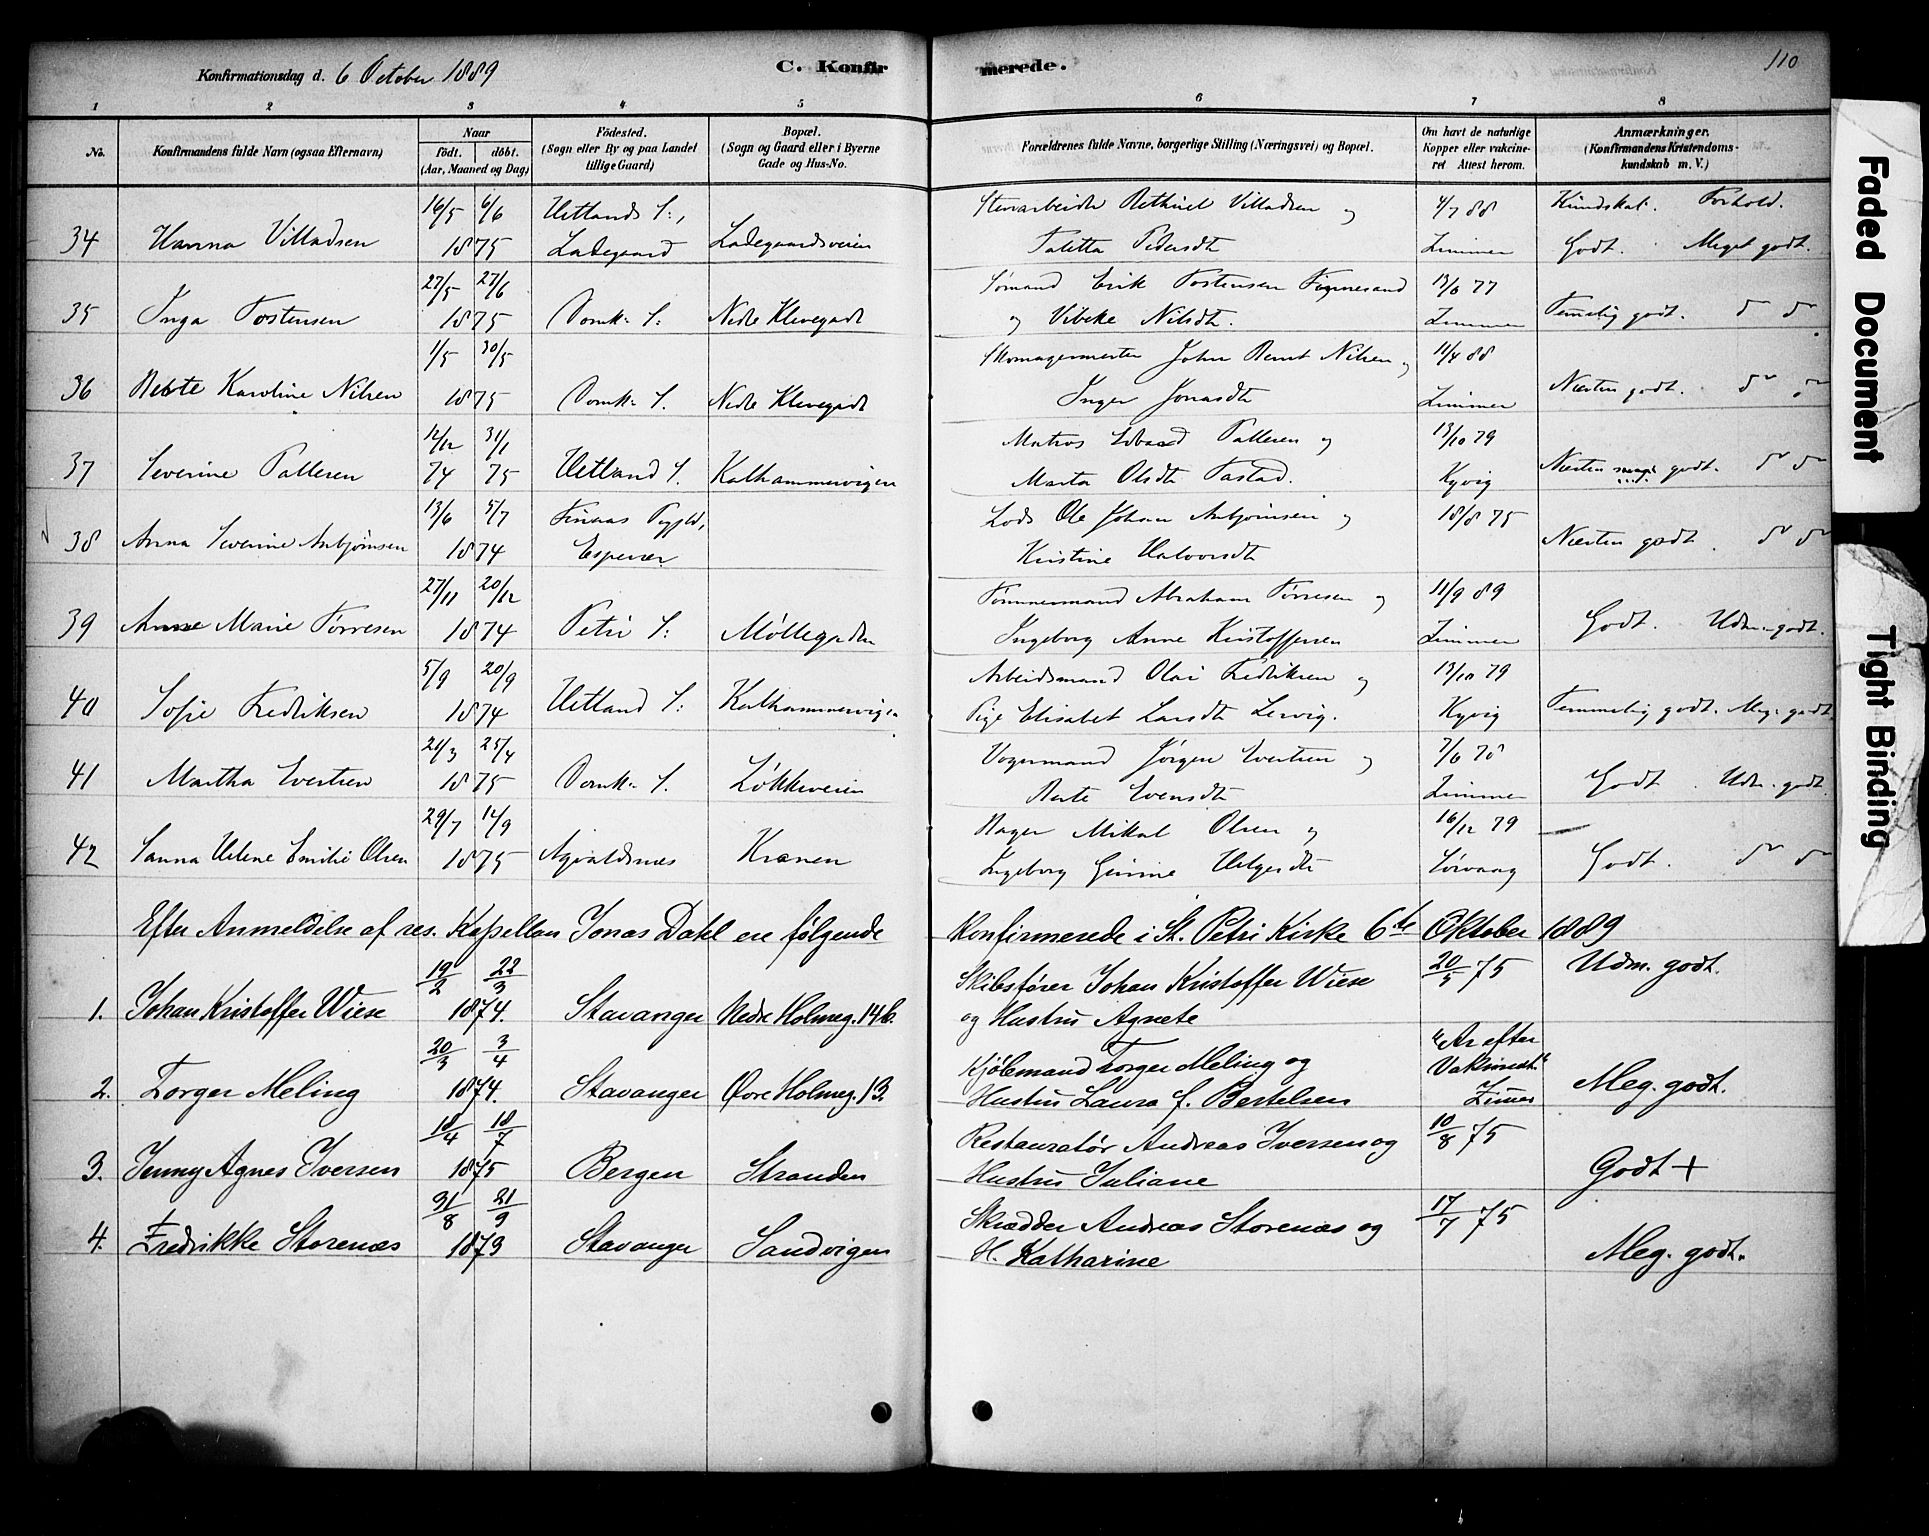 Konfirmationsdag d. 6 October 1889
C. Konfirmerede.
110
1 2 3 4 5 6 7 8
No.
Konfirmandens fulde Navn (ogsaa Efternavn)
Naar
födt. döbt.
(Aar, Maaned og Dag)
Födested.
(Sogn eller By og paa Landet
tillige Gaard)
Bopæl.
(Sogn og Gaard eller i Byerne
Gade og Hus-No.
Forældrenes fulde Navne, borgerlige Stilling (Næringsvei) og Bopæl.
Om havt de naturlige
Kopper eller vakcine-
ret Attest herom.
Anmærkninger.
(Konfirmandens Kristendoms-
kundskab m. V.)
16/5 6/6 Hetlands S:, Stenarbeider Villadsen og 4/7 88 Kundskab. Forhold.
34 Hanna Villadsen 1875 Ladegaard Ladegaardsveien Talitta Pedersdt Zimmer Godt. Meget godt.
27/5 27/6 Sømand Erik Tostensen og 13/6 77
35 Inga Tostensen 1875 Domk. S: Nedre Klevegade Vibeke Nilsdt. Zimmer Temmelig godt. do do
1/5 30/5 Skomagermester John Bernt Nilsen og 11/4 88
36 Berte Karoline Nilsen 1875 Domk. S. Nedre Klevegade Inger Jonasdt Zimmer Næsten godt. do do
12/12 31/1 Matros Edvard Pallesen og 13/10 79
37 Severine Pallesen 74 75 Hetland S. Kalhammervigen Marta Olsdt Tastad. Kyvig Næsten godt. do do
13/6 5/7 Finnaas Lods Ole Johan Anbjørnsen og 18/8 75
38 Anna Severine Anbjørnsen 1874 Espevær Kristine Halvorsdt Næsten godt. do do
27/11 20/12 Tømmermand Abraham Tørresen og 11/9 89
39 Anne Marie Tørresen 1874 Petri S: Møllegaden Ingeborg Anne Kristoffersen Zimmer Godt. Udm. godt.
5/9 20/9 Arbeidsmand Olai Fredriksen og 13/10 79
40 Sofie Fredriksen 1874 Hetland S: Kalhammervigen Pige Elisabet Larsdt Lervig. Kyvig Temmelig godt. Meg. godt
21/3 25/4 Vognmand Jørgen Evertsen og
41 Martha Evertsen 1875 Domk. S. Løkkeveien Berte Evensdt Zimmer Godt. Udm. godt.
29/7 14/9 Bager Mikal Olsen og 16/12 79
42 Sanna Helene Emilie Olsen 1875 Agvaldsnes Kranen Ingeborg Helgesdt Sørvaag Godt. do do
Efter Anmeldelse af res. Kapellan Jonas Dahl ere følgende Konfirmerede i St. Petri Kirke 6te Oktober 1889
19/2 22/3 Skibsfører Johan Kristoffer Wiese 20/5 75 Udm. godt.
1. Johan Kristoffer Wiese 1874. Stavanger Nedre Holmeg. 14b. og Hustru Agnete
20/3 3/4 Kjøbmand Torger Meling og "Ar efter Vakcinedt."
2. Torger Meling 1874. Stavanger Øvre Holmeg. 13. Hustru Laura f. Bertelsen Zimer Meg. godt.
18/4 18/7 Restauratør Andreas Iversen og 10/8 75
3. Jenny Agnes Iversen 1875 Bergen Stranden Hustru Juliane Godt +
31/8 21/9 Skrædder Andreas Storenæs og 17/7 75
4. Fredrikke Storenæs 1873 Stavanger Sandvigen H. Katharine Meg. godt.
Faded Document
Tight Binding